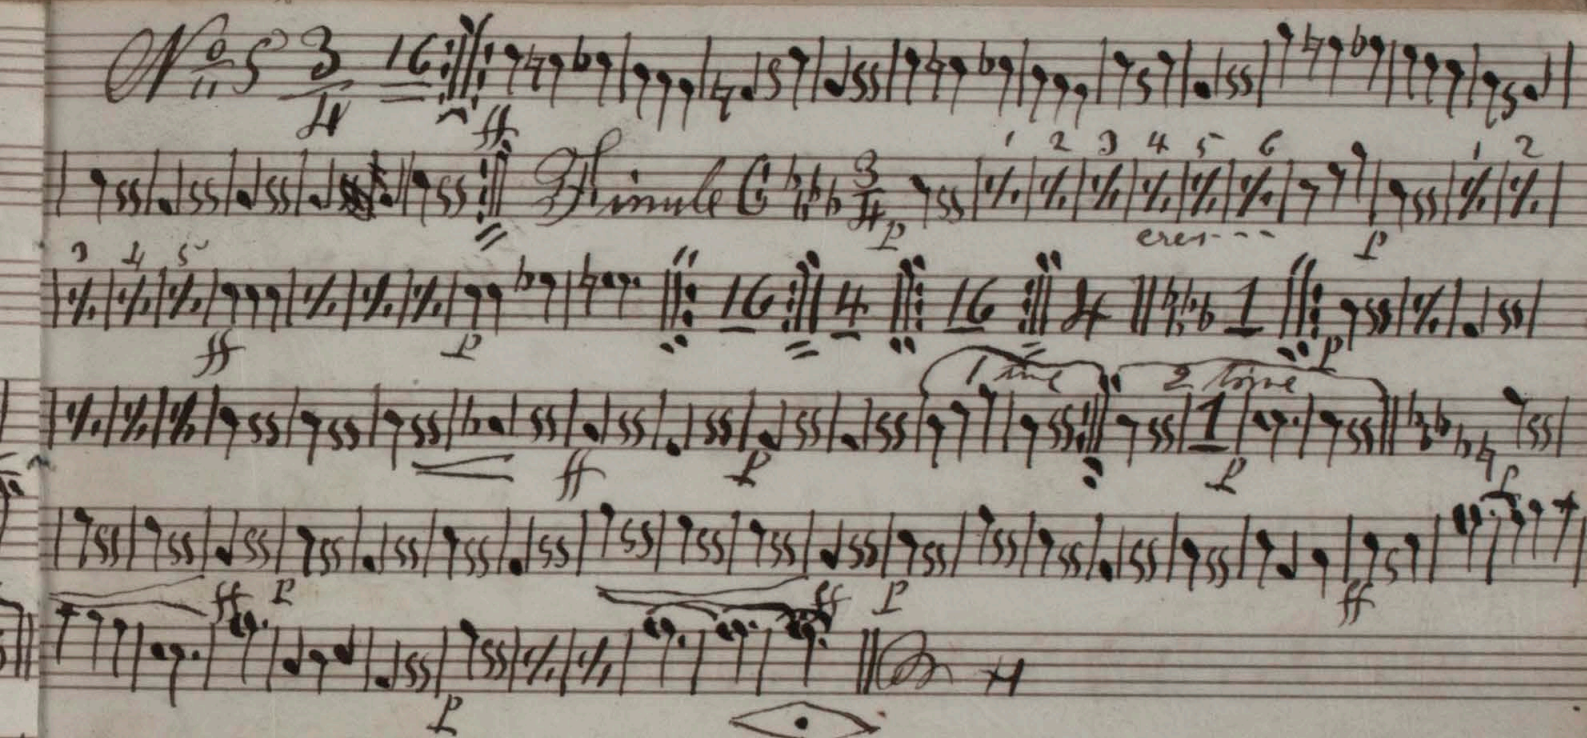 No 5 3/4 16 ff
Finale C 3/4 P 1 2 3 4 5 6 cres--- P 1 2
3 4 5 ff P 16 4 16 4 1 P
ff P 1 time 2 time 1 P P
ff P ff P ff
P